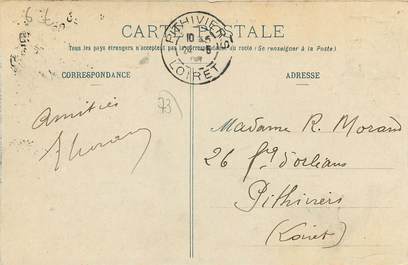 CARTE POSTALE
Tous les pays étrangers n'acceptent pas la correspondance au recto (Se renseigner à la Poste)
PITHIVIERS
LOIRET
CORRESPONDANCE
ADRESSE
Amitiés
73
Madame R. Morand
26 fbg d'orléans
Pithiviers
(Loiret)